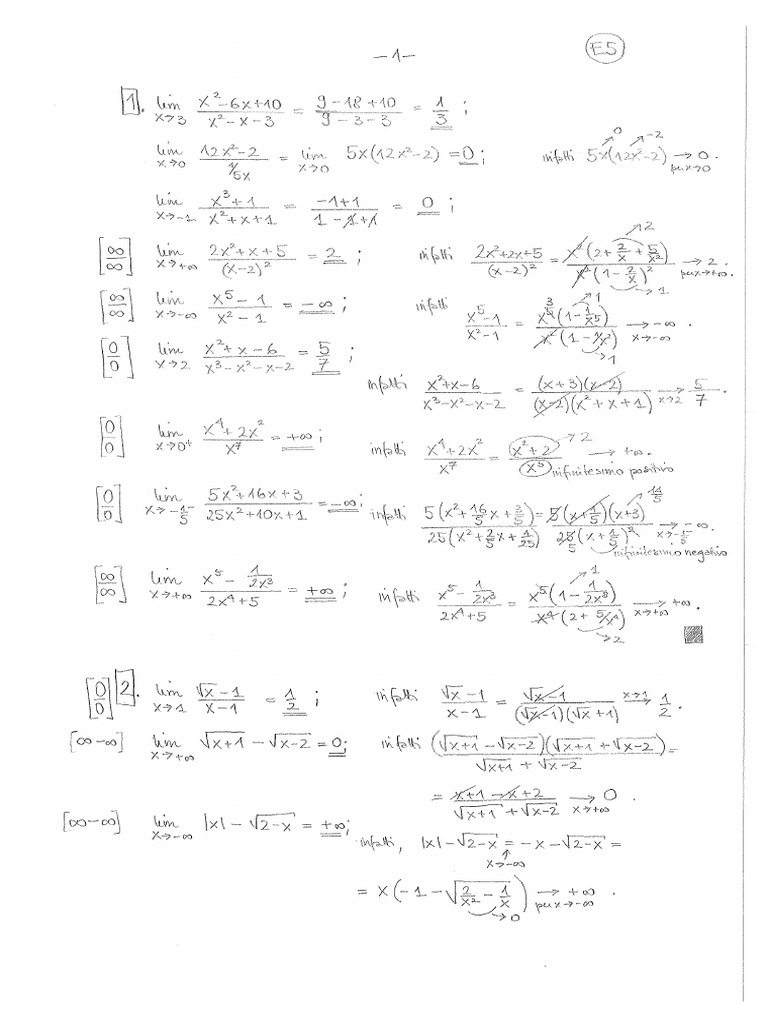 -1-
E5
1. lim x→3 (x²-6x+10)/(x²-x-3) = (9-18+10)/(9-3-3) = 1/3 ;
lim x→0 (12x²-2)/(1/5x) = lim x→0 5x(12x²-2) = 0 ; infatti 5x(12x²-2) → 0 per x→0. [0] [-2]
lim x→-1 (x³+1)/(x²+x+1) = (-1+1)/(1-1+1) = 0 ;
[∞/∞] lim x→+∞ (2x²+x+5)/(x-2)² = 2 ; infatti (2x²+2x+5)/(x-2)² = x²(2+2/x+5/x²)/x²(1-2/x)² → 2 per x→+∞. [→2] [→1]
[∞/∞] lim x→-∞ (x⁵-1)/(x²-1) = -∞ ; infatti (x⁵-1)/(x²-1) = x⁵(1-1/x⁵)/x²(1-1/x²) → -∞ x→-∞. [3] [→1] [→1]
[0/0] lim x→2 (x²+x-6)/(x³-x²-x-2) = 5/7 ;
infatti (x²+x-6)/(x³-x²-x-2) = (x+3)(x-2)/(x-2)(x²+x+1) → x→2 5/7.
[0/0] lim x→0⁺ (x⁴+2x²)/x⁷ = +∞ ; infatti (x⁴+2x²)/x⁷ = (x²+2)/x⁵ → +∞. [→2] infinitesimo positivo
[0/0] lim x→-1/5⁻ (5x²+16x+3)/(25x²+10x+1) = -∞ ; infatti 5(x²+16/5x+3/5)/25(x²+2/5x+1/25) = 5(x+1/5)(x+3)/25(x+1/5)² → -∞. x→-1/5⁻ [14/5] [5] infinitesimo negativo
[∞/∞] lim x→+∞ (x⁵-1/2x³)/(2x⁴+5) = +∞ ; infatti (x⁵-1/2x³)/(2x⁴+5) = x⁵(1-1/2x⁸)/x⁴(2+5/x⁴) → +∞. x→+∞ [→1] [→2]
[0/0] 2. lim x→1 (√x-1)/(x-1) = 1/2 ; infatti (√x-1)/(x-1) = (√x-1)/(√x-1)(√x+1) → x→1 1/2.
[∞-∞] lim x→+∞ √x+1 - √x-2 = 0 ; infatti (√x+1 - √x-2)(√x+1 + √x-2)/(√x+1 + √x-2) =
= (x+1-x+2)/(√x+1 + √x-2) → 0 . x→+∞
[∞-∞] lim x→-∞ |x| - √2-x = +∞ ; infatti, |x| - √2-x = -x - √2-x = x→-∞
= x(-1 - √2/x² - 1/x) → +∞ per x→-∞ . [→0]